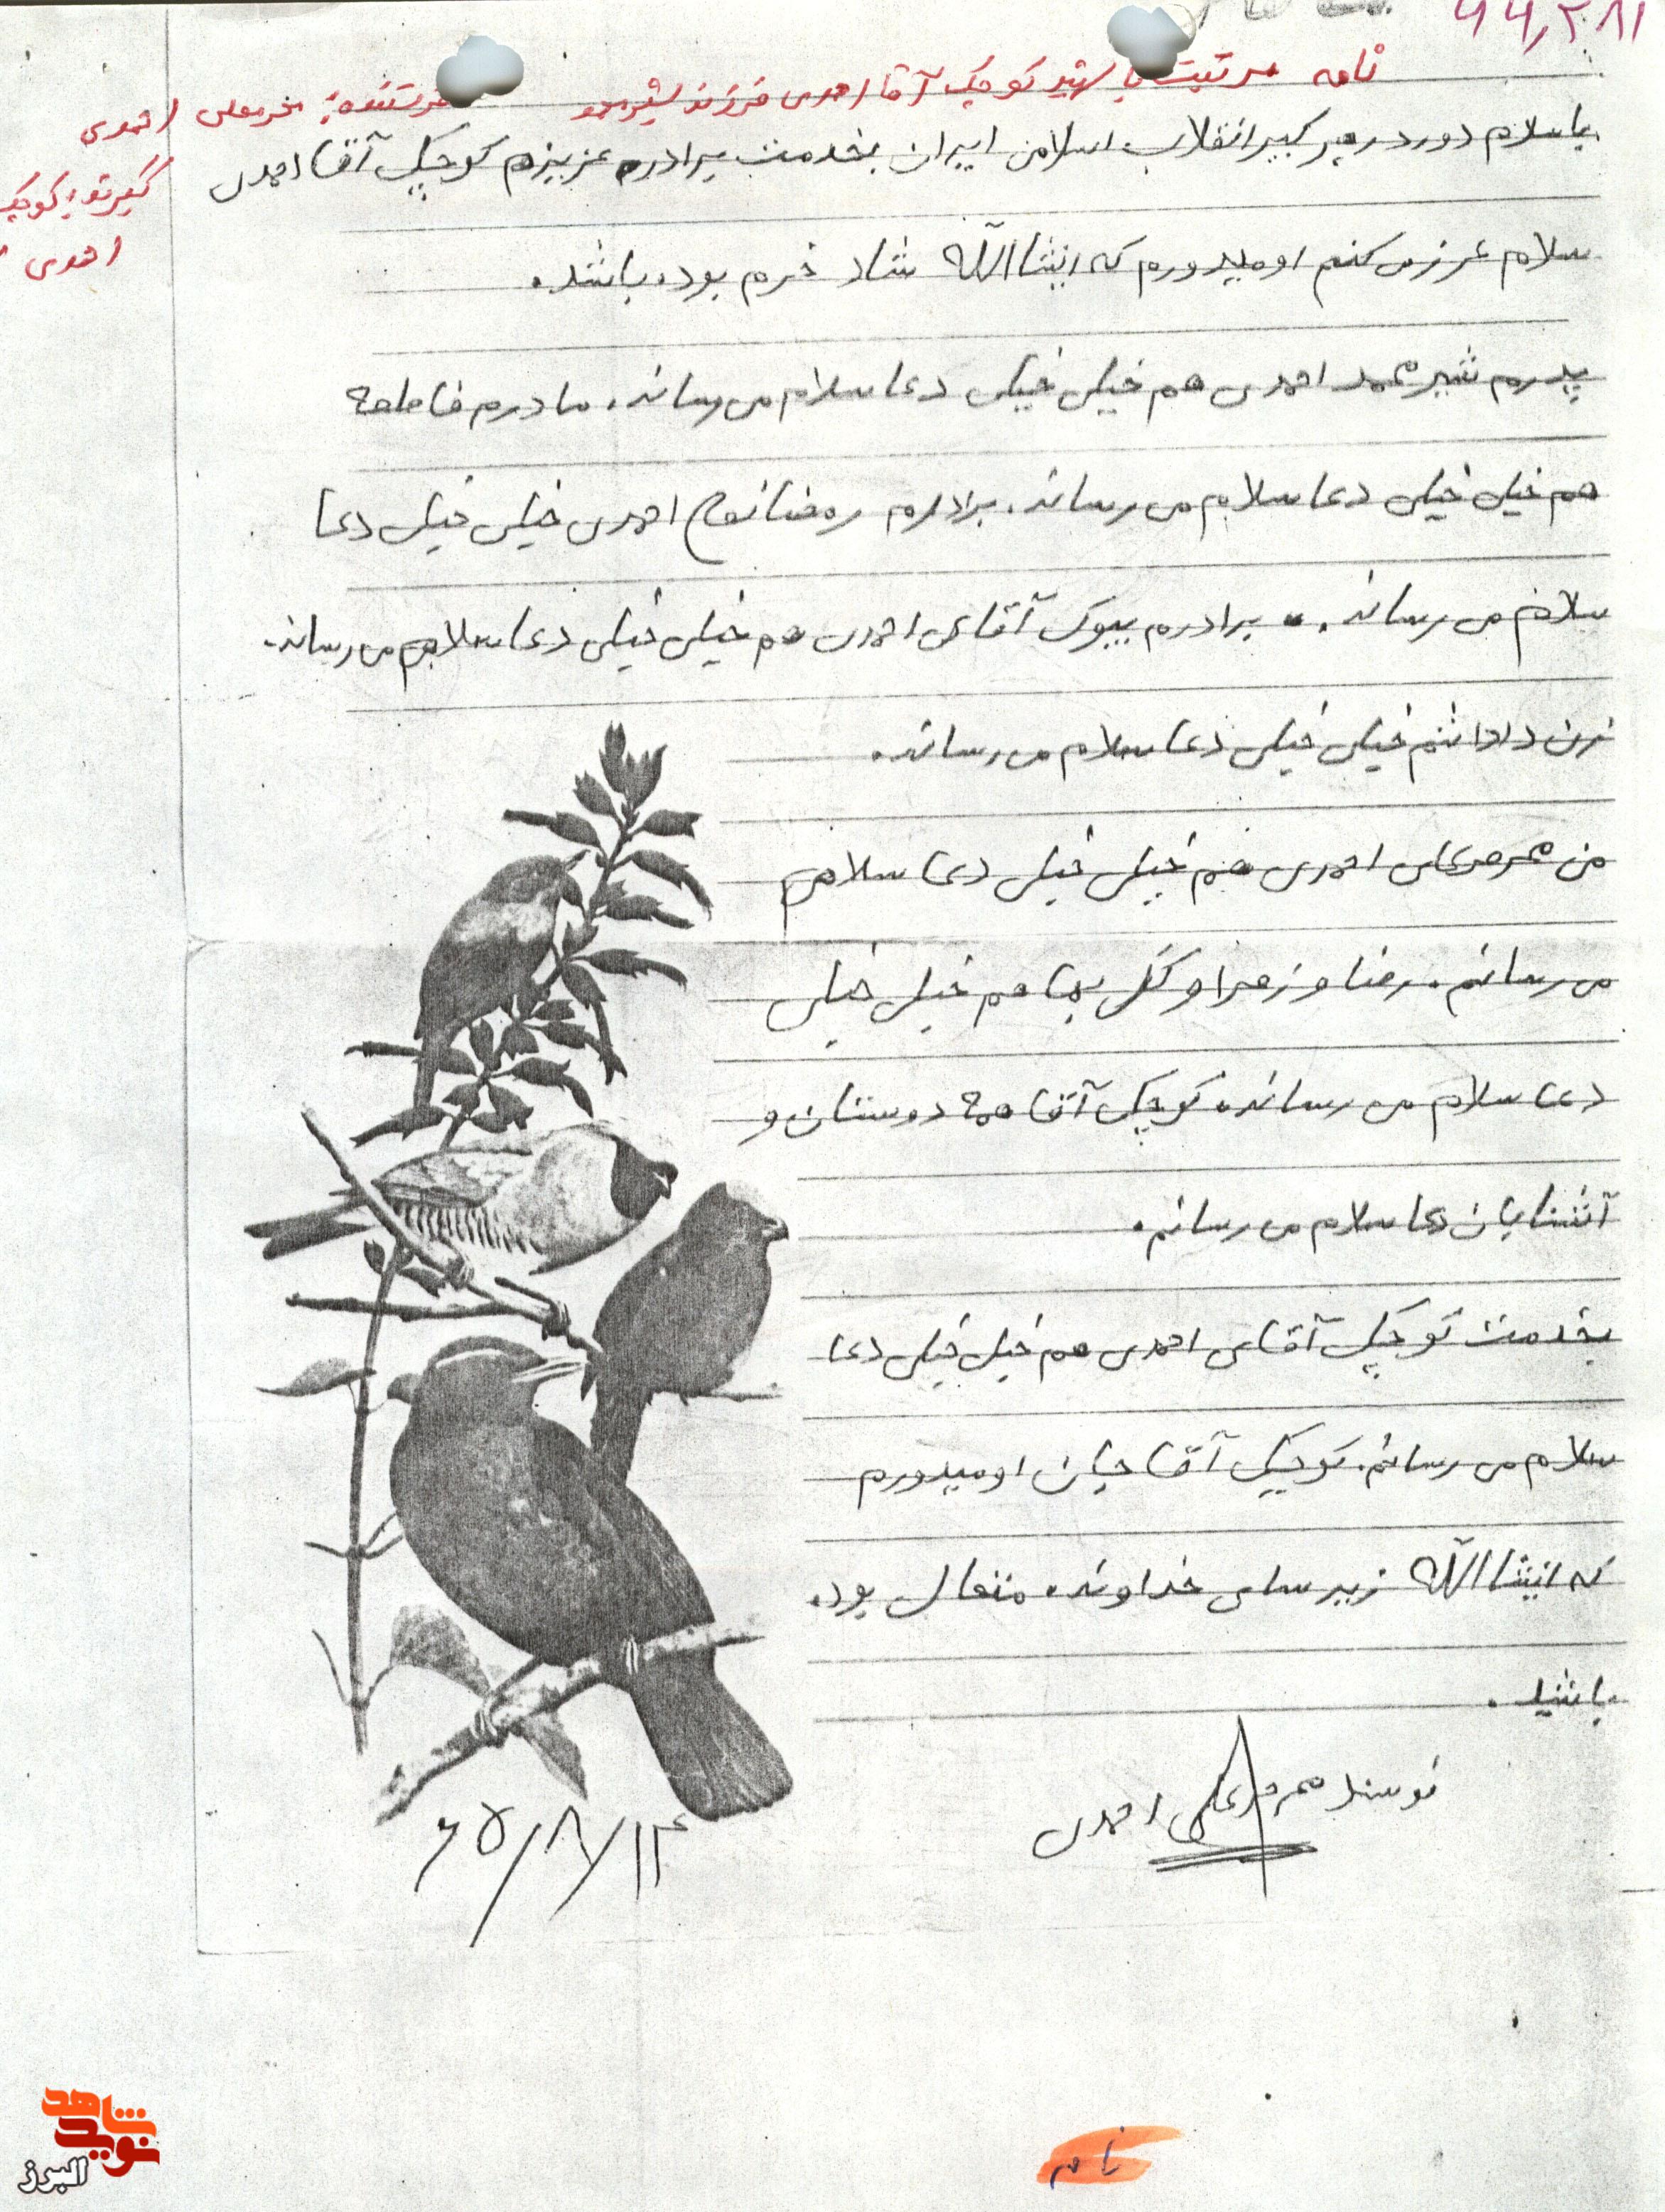 ۴۴,۲۸۱
نامه مرتبت با شهید کوچک آقا احمدی فرزند شیرمحمد
فرستنده: محرمعلی احمدی
گیرنده: کوچک
احمدی
با سلام دورد رهبر کبیر انقلاب اسلامی ایران بخدمت برادرم عزیزم کوچک آقا احمدی
سلام عرز می کنم اومیدورم که انشاالله شاد خرم بوده باشد.
پدرم شیرمحمد احمدی هم خیلی خیلی دعا سلام می رساند. مادرم فاطمه
هم خیلی خیلی دعا سلام می رساند. برادرم رمضانعلی احمدی خیلی خیلی دعا
سلام می رساند. برادرم بیوک آقای احمدی هم خیلی خیلی دعا سلام می رساند.
زن داداشم خیلی خیلی دعا سلام می رساند.
من محرمعلی احمدی هم خیلی خیلی دعا سلام
می رسانم. رضا و زهرا و کل بها هم خیلی خیلی
دعا سلام می رساند. کوچک آقا همه دوستان و
آشنایان دعا سلام می رسانم.
بخدمت کوچک آقای احمدی هم خیلی خیلی دعا
سلام می رسانم. کوچک آقا جان اومیدورم
که انشاالله زیر سای خداونده متعال بوده
باشید.
نوسنده محرمعلی احمدی
۶۵/۸/۱۴
نامه
شاهد
نوید
البرز